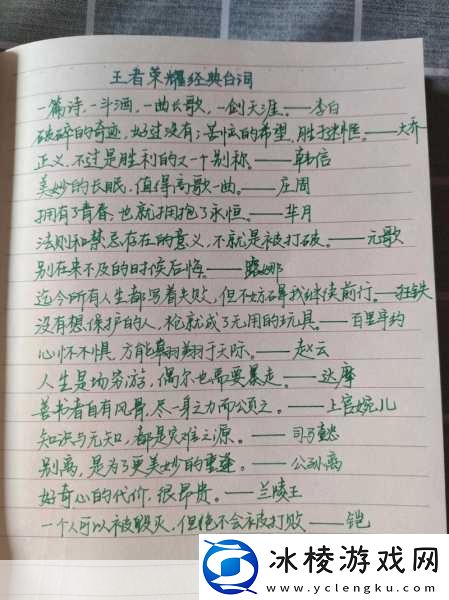 王者荣耀经典台词
一篇诗,一斗酒,一曲长歌,一剑天涯。——李白
破碎的奇迹,好过没有;苦恼的希望,胜于迷惘。——大乔
正义,不过是胜利的又一个别称。——韩信
美妙的长眠,值得高歌一曲。——庄周
拥有了青春,也就拥抱了永恒。——芈月
法则和禁忌存在的意义,不就是被打破。——元歌
别在来不及的时候后悔。——露娜
迄今所有人生都写着失败,但不妨碍我继续前行——狂铁
没有想保护的人,枪就成了无用的玩具。——百里守约
心怀不惧,方能翱翔于天际。——赵云
人生是场穷游,偶尔也需要暴走。——达摩
善书者自有风骨,尽一身之力而贞之。——上官婉儿
知识与无知,都是灾难之源。——司马懿
别离,是为了更美妙的重逢。——公孙离
好奇心的代价,很昂贵。——兰陵王
一个人可以被毁灭,但绝不会被打败——铠
冰棱游戏网
www.yclengku.com